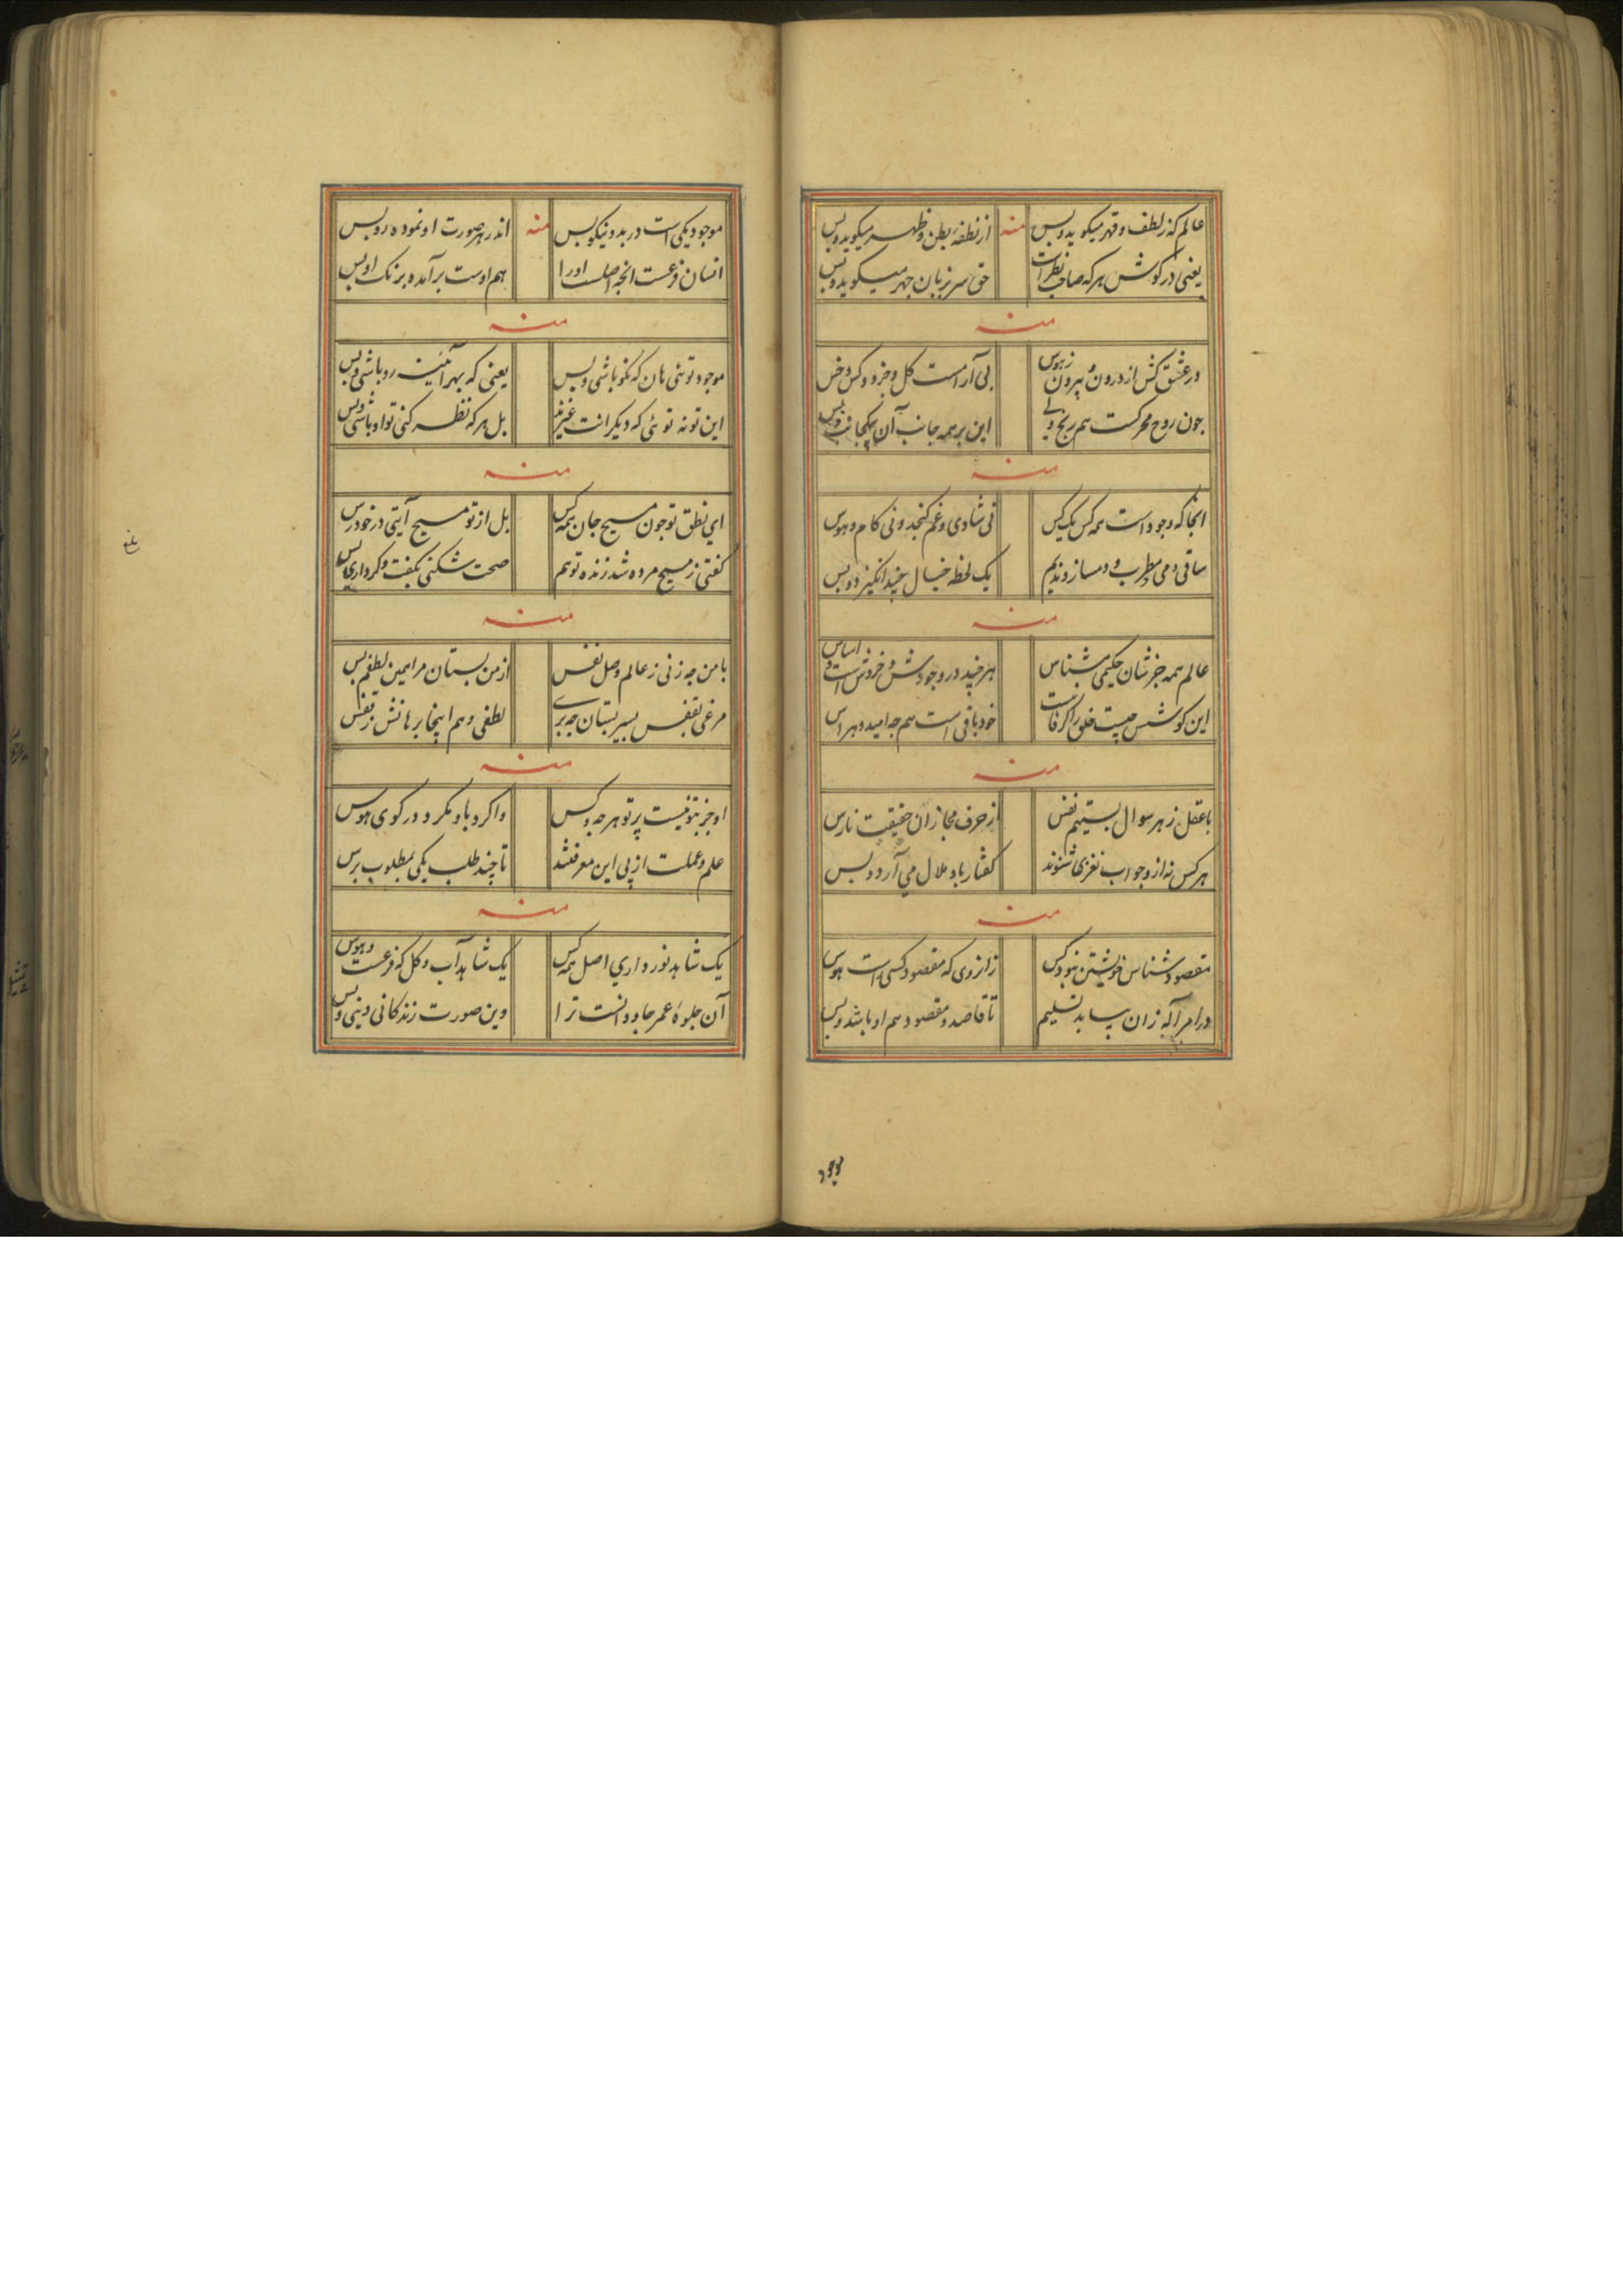 عالم که ز لطف و قهر میکوید و بس منه از نطفهٔ بطن و ظهر میکوید و بس
یعنی در کوش هر که صاحب نظر است حق سر بزبان جهر میکوید و بس
منه
در عشق کش از درون و بیرون ز هوس بی آرامست کل و جزو و کس و خس
جون روح محرکست هم رنج ولی این بر همه جانب آن بیکجانب و بس
منه
انجا که وجود است همه کس یک کس نی شادی و غم کنجد و نی کام و هوس
ساقی و می و مطرب و دمساز و ندیم یک لحظه خیال چند انکیزد و بس
منه
عالم همه جز شان حکیمی مشناس هر چند در وجودش و خروش است و اساس
این کوشش چیست خلق را کر فانیست خود باقی است هم چه امید و هراس
منه
با عقل ز هر سوال بستیم نفس از حرف مجاز آن حقیقت نارس
هر کس نه از و جواب نغزی شنوند کفتار باو ملال می آرد و بس
منه
مقصود شناس خویشتن نبود کس زانروی که مقصود کسی است هوس
در امر آکه زان بیاید تسلیم تا قاصد و مقصود هم او باشد و بس
موجود
موجود یکی است در بد و نیکو بس منه اندر هر صورت او نموده رو بس
انسان فرعست انچه اصلست اورا هم اوست برآمده برنک او بس
منه
موجود توئی هان که نکو باشی و بس یعنی که بهر آئینه رو باشی و بس
این تو نه توئی که دیکرانت غیرند بل هر که نظر کنی تو او باشی و بس
منه
ای نطق تو جون مسیح جان همه کس بل از تو مسیح آیتی در خود رس
کفتی ز مسیح مرده شد زنده تو هم صحت شکنی بکفت و کرداری بس
منه
با من چه زنی ز عالم وصل نفس از من بستان مرا همین لطفم بس
مرغی بقفس بسیر بستان چه بری لطفی و هم اینجا برهانش ز قفس
منه
او جز بتو نیست پرتو هر چه و کس واکرد باو مکرد در کوی هوس
علم و عملت از پی این معرفتند تا چند طلب یکی بمطلوب برس
منه
یک شاهد نور داری اصل همه کس یک شاهد آب و کل که فرعست و هوس
آن جلوهٔ عمر جاودانست ترا وین صورت زندکانی دنیی و بس
بلغ